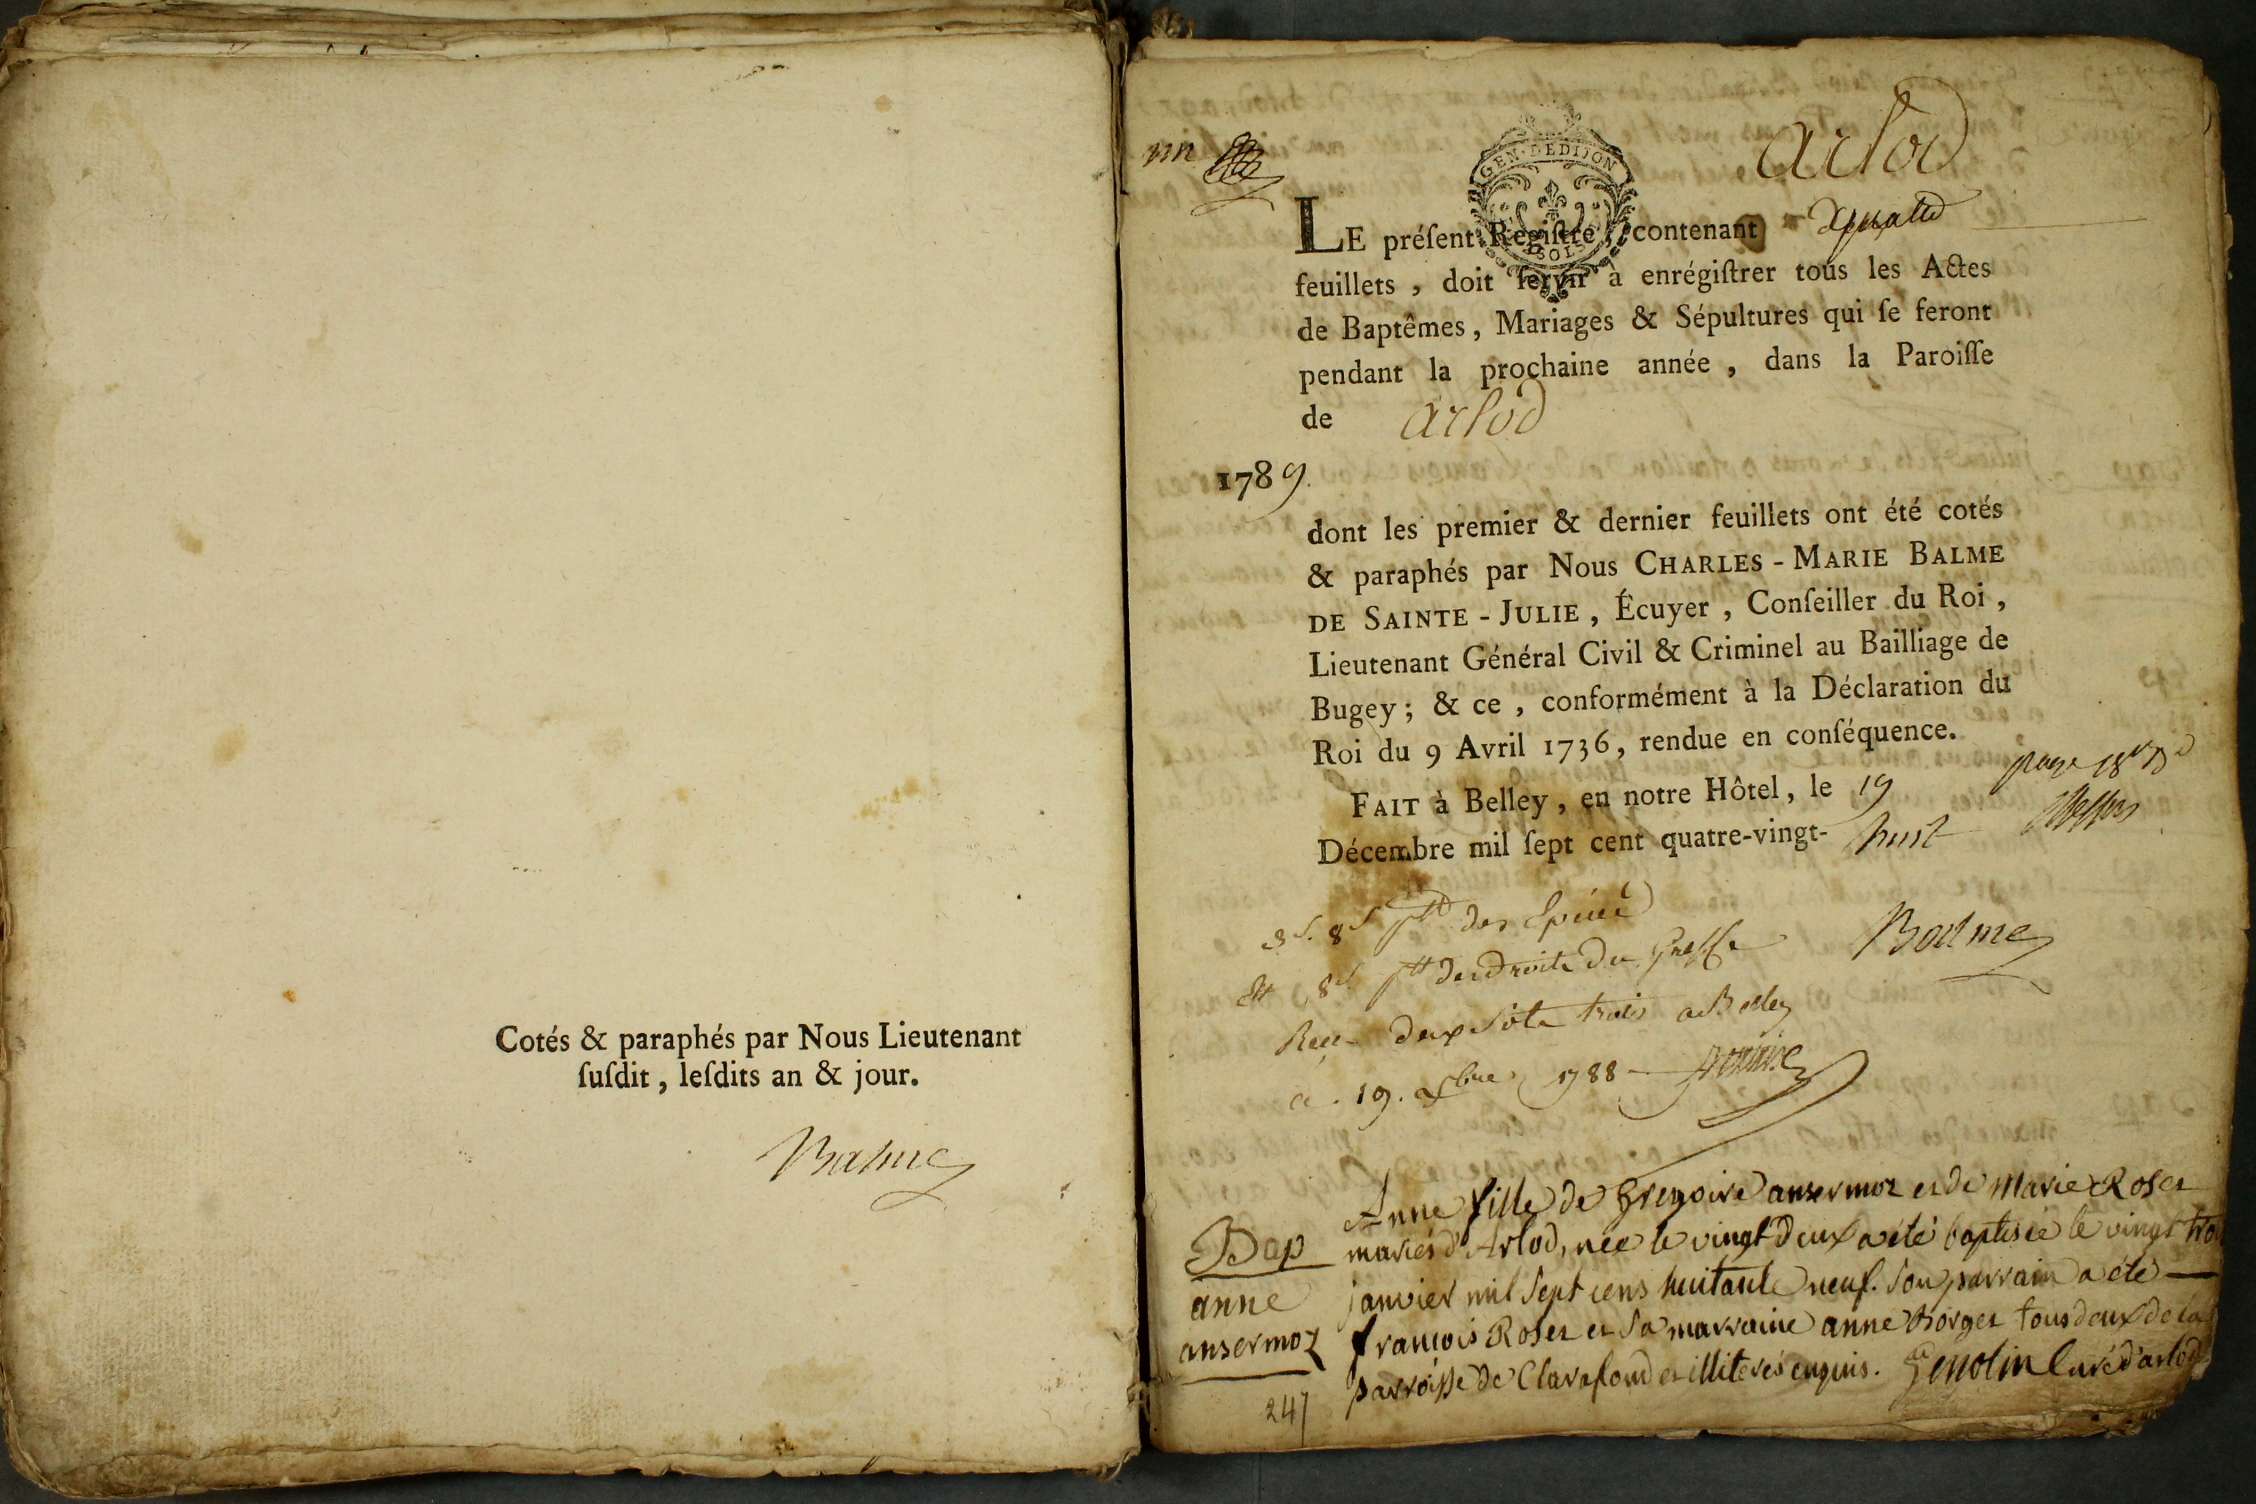 Cotés & paraphés par Nous Lieutenant
ſuſdit, leſdits an & jour.
Balme
Arlod
GEN·DEDIJON
LE préſent Regiſtre, contenant
feuillets, doit ſervir à enrégiſtrer tous les Actes
de Baptêmes, Mariages & Sépultures qui ſe feront
pendant la prochaine année, dans la Paroiſſe
de Arlod
1789.
dont les premier & dernier feuillets ont été cotés
& paraphés par Nous CHARLES-MARIE BALME
DE SAINTE-JULIE, Écuyer, Conſeiller du Roi,
Lieutenant Général Civil & Criminel au Bailliage de
Bugey; & ce, conformément à la Déclaration du
Roi du 9 Avril 1736, rendue en conſéquence.
FAIT à Belley, en notre Hôtel, le 19
Décembre mil ſept cent quatre-vingt-huit
8 s. des Epices
8 s. des Droits Du Greffe
Balme
Reçu deux sols trois a Belley
19. Xbre 1788
Bap
anne
ansermoz
Anne fille de Gregoire ansermoz et de Marie Roset
mariés d'Arlod, née le vingt Deux a été baptisée le vingt trois
janvier mil sept cens huitante neuf. Son parrain a été
francois Roset et Sa marraine anne Borget tous deux de la
parroisse de Clarafond et illiterés enquis. Genolin Curé d'arlod
247